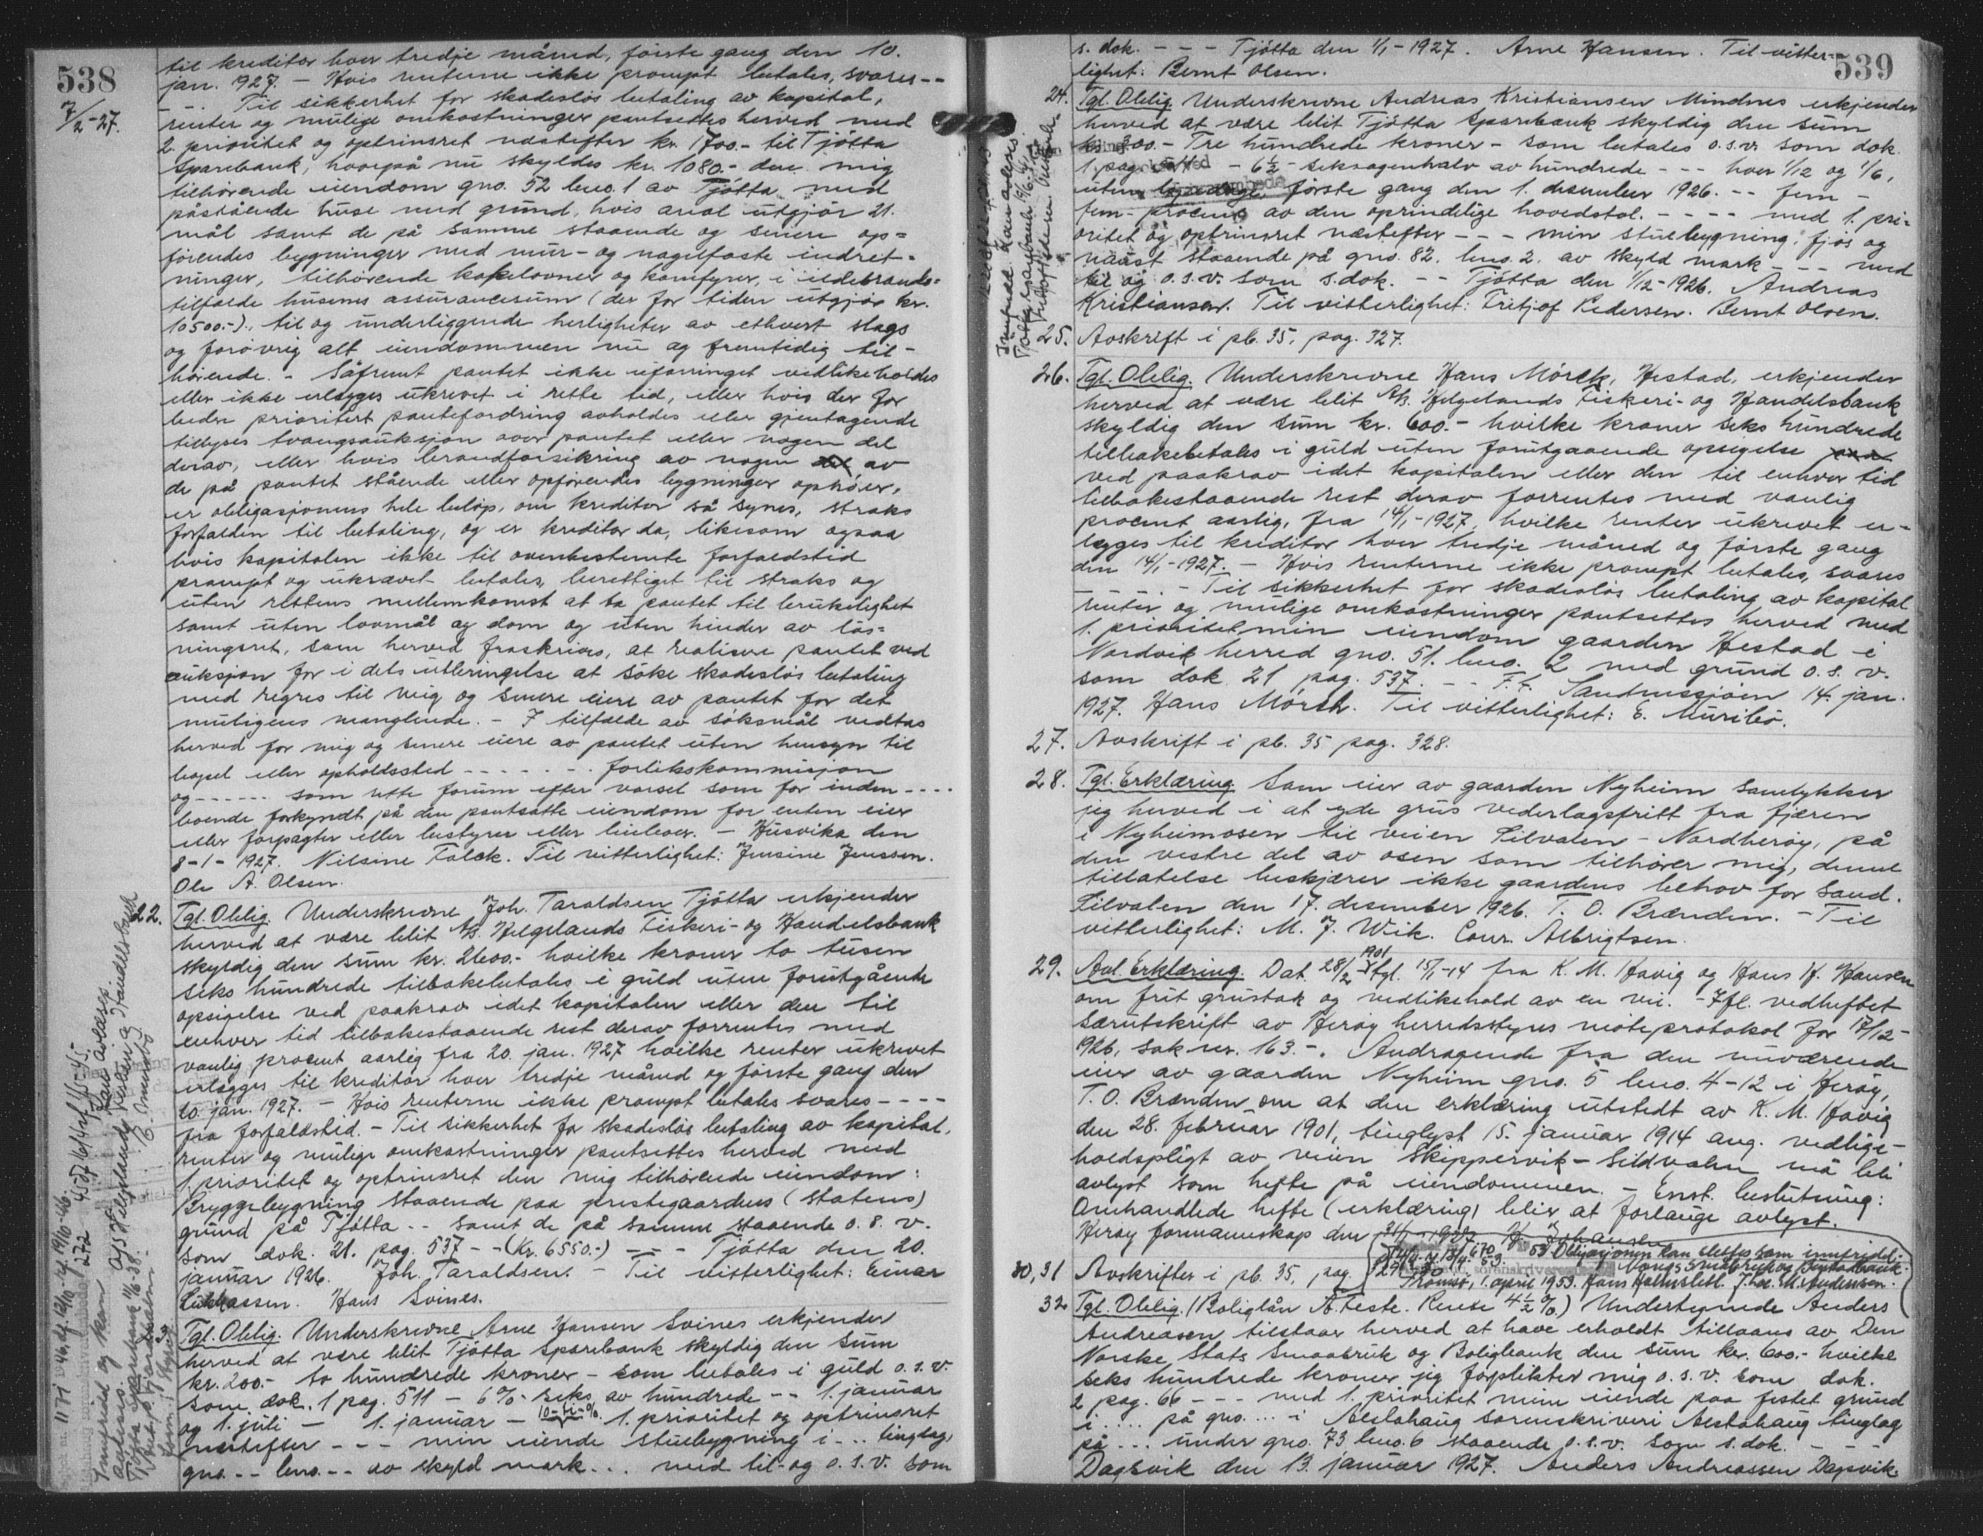 538
7/2-27.
til kreditor hver tredje måned, første gang den 10.
jan. 1927. - Hvis renterne ikke prompt betales, svares --
- -. Til sikkerhet for skadesløs betaling av kapital,
renter og mulige omkostninger pantsettes herved med
2. prioritet og optrinsret næstefter kr. 1700.- til Tjøtta
Sparebank, hvorpå nu skyldes kr. 1080.- den mig
tilhørende eiendom gno. 52 bno. 1 av Tjøtta med
påstående huse med grund, hvis areal utgjør 21.
mål samt de på samme staaende og senere op=
førendes bygninger med mur- og nagelfaste indret-
ninger, tilhørende kakelovner og komfyrer, i ildebrands=
tilfælde husenes assurancesum (der for tiden utgjør kr.
10500.-), til og underliggende herligheter av ethvert slags
og forøvrig alt eiendommen nu og fremtidig til-
hørende. - Såfremt pantet ikke uforringet vedlikeholdes
eller ikke erlægges ukrevet i rette tid, eller hvis der for
bedre prioritert pantefordring avholdes eller gjentagende
tillyses tvangsauksjon over pantet eller nogen del
derav, eller hvis brandforsikring av nogen av
de på pantet stående eller opførendes bygninger ophører,
er obligasjonens hele beløp, om kreditor så synes, straks
forfalden til betaling, og er kreditor da, likesom ogsaa
hvis kapitalen ikke til ovenbestemte forfaldstid
prompt og ukrævet betales, berettiget til straks og
uten rettens mellemkomst at ta pantet til brukelighet
samt uten lovmål og dom og uten hinder av løs=
ningsret, som herved fraskrives, at realisere pantet ved
auksjon for i dets utbringelse at søke skadesløs betaling
med regres til mig og senere eiere av pantet for det
muligens manglende. - I tilfælde av søksmål vedtas
herved for mig og senere eiere av pantet uten hensyn til
bopel eller opholdssted - - - - - - forlikskommisjon
og - - - - - - som rette forum efter varsel som for inden- - - -
boende forkyndt på den pantsatte eiendom for enten eier
eller forpagter eller bestyrer eller leieboer. - Husvika den
8-1-1927. Nilsine Falck. Til vitterlighet: Jensine Jenssen.
Ole A. Olsen.
22. Tgl. Oblig. Underskrevne Joh. Taraldsen Tjøtta erkjender
herved at være blit A/S Helgelands Fiskeri- og Handelsbank
skyldig den sum kr. 2600.- hvilke kroner to tusen
seks hundrede tilbakebetales i guld uten forutgående
opsigelse ved paakrav idet kapitalen eller den til
enhver tid tilbakestaaende rest derav forrentes med
vanlig procent aarlig fra 20. jan. 1927 hvilke renter ukrevet
erlægges til kreditor hver tredje måned og første gang den
20. jan. 1927. - Hvis renterne ikke prompt betales svares - - - -
fra forfaldstid. - Til sikkerhet for skadesløs betaling av kapital,
renter og mulige omkostninger pantsettes herved med
1. prioritet og optrinsret den mig tilhørende eiendom:
Bryggebygning staaende paa prestegaardens (statens)
grund på Tjøtta -- samt de på samme staaende o. s. v.
som dok. 21. pag. 537 - - (kr. 6550.-) - - - Tjøtta den 20.
januar 1926. Joh. Taraldsen. - Til vitterlighet: Einar
Hans Svines.
Tgl. Oblig. Underskrevne Arne Hansen Svines erkjender
herved at være blit Tjøtta Sparebank skyldig den sum
kr. 200.- to hundrede kroner - som betales i guld o. s. v.
som dok. 1 pag. 511 - 6% - seks av hundrede -- 1. januar
og 1. juli - 1. januar - 1. prioritet og optrinsret
næstefter - - - min eiende stuebygning i -.. tinglag,
gno. -- bno. -- av skyld mark... med til- og o. s. v. som
539
s. dok. - - - Tjøtta den 1/1-1927. Arne Hansen. Til vitter-
lighet: Bernt Olsen.
24. Tgl. Oblig. Underskrevne Andreas Kristiansen Mindnes erkjender
herved at være blit Tjøtta Sparebank skyldig den sum
kr. 300.- Tre hundrede kroner - som betales o.s.v. som dok.
1 pag. - 6½ - seksogenhalv av hundrede - - - hver 1/12 og 1/6,
første gang den 1. desember 1926. -- fem -
fem- procent av den oprindelige hovedstol. - - - - med 1. pri-
oritet og optrinsret næstefter - - - min stuebygning, fjøs og
naust staaende på gno. 82. bno. 2. av skyld mark - - med
til og o.s.v. som s. dok. - - Tjøtta den 1/12-1926. Andreas
Kristiansen. Til vitterlighet: Fritjof Pedersen. Bernt Olsen.
25. Avskrift i pb. 35, pag. 327.
26. Tgl. Oblig. Underskrevne Hans Mörch, Hestad, erkjender
herved at være blit A/S. Helgelands Fiskeri- og Handelsbank
skyldig den sum kr. 600.- hvilke kroner seks hundrede
tilbakebetales i guld uten forutgaaende opsigelse
ved paakrav idet kapitalen eller den til enhver tid
tilbakestaaende rest derav forrentes med vanlig
procent aarlig, fra 14/1-1927, hvilke renter ukrevet er-
lægges til kreditor hver tredje måned og første gang
den 14/1-1927. - Hvis renterne ikke prompt betales, svares
- - - - . - Til sikkerhet for skadesløs betaling av kapital
renter og mulige omkostninger pantsettes herved med
1. prioritet min eiendom gaarden Hestad i
Nordvik herred gno. 51. bno. 2 med grund o. s. v.
som dok. 21 pag. 537. - - F. t. Sandnessjøen 14. jan.
1927. Hans Mörch. Til vitterlighet: E. Muribø.
27. Avskrift i pb. 35 pag. 328.
28. Tgl. Erklæring. Som eier av gaarden Nyheim samtykker
jeg herved i at yde grus vederlagsfritt fra fjæren
i Nyheimosen til veien Silvalen - Nordherøy, på
den vestre del av osen som tilhører mig, denne
tillatelse beskjærer ikke gaardens behov for sand.
Silvalen den 17. desember 1926. T. O. Brænden. - Til
vitterlighet: M. J. Wik. Conr. Albrigtsen.
29. Avl. Erklæring. Dat. 28/2 1901 tgl. 15/1-14 fra K. M. Havig og Hans H. Hansen
om frit grustak og vedlikehold av en vei. - Ifl. vedheftet
særutskrift av Herøy herredsstyres møteprotokol for 17/12-
1926, sak nr. 163.-. Andragende fra den nuværende
eier av gaarden Nyheim gno. 5 bno. 4-12 i Herøy,
T. O. Brænden om at den erklæring utstedt av K. M. Havig
den 28. februar 1901, tinglyst 15. januar 1914 ang. vedlike-
holdspligt av veien Skippervik - Sildvalen må bli
avlyst som hefte på eiendommen. - Enst. beslutning:
Omhandlede hefte (erklæring) blir at forlange avlyst.
Herøy formannskap den 21/1 1927 H. Johansen
30, 31 Avskrifter i pb. 35, pag. 329, 330
Obligasjonen kan slettes som innfridd.
Norges Småbruk og Bustadbank.
Tromsø, 1. april 1953. Hans Holmslett. Andersen.
32 Tgl. Oblig. (Boliglån A. Feste. Rente 4½ %) Undertegnede Anders
Andreasen tilstaar herved at have erholdt tillaans av Den
Norske Stats Smaabruk og Boligbank den sum kr. 600.- hvilke
seks hundrede kroner jeg forplikter mig o. s. v. som dok.
2 pag. 66 - - - med 1. prioritet min eiende paa festet grund
i .... på gno. ... i Alstahaug sorenskriveri Alstahaug tinglag
på ... under gno. 73 bno. 6 staaende o. s. v. som s. dok. - - -
Dagsvik den 13. januar 1927. Anders Andreassen Dagsvik.